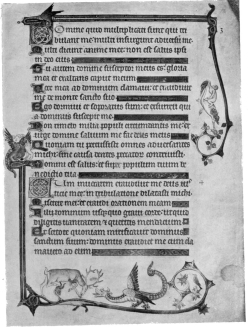 Domine quid multiplicati sunt qui tri
bulant me multi insurgunt adversum me
Multi dicunt anime mee non est salus ipsi
in deo eius
Tu autem domine susceptor meus es gloria
mea et exaltans caput meum
Voce mea ad dominum clamavi et exaudivit
me de monte sancto suo
Ego dormivi et soporatus sum et exsurrexi qui
a dominus suscepit me
Non timebo milia populi circumdantis me ex
urge domine salvum me fac deus meus
Quoniam tu percussisti omnes adversantes
michi sine causa dentes peccatorum contrivisti
Domini est salus et super populum tuum be
nedictio tua
Cum invocarem exaudivit me deus ius
ticie mee in tribulatione dilatasti michi
Miserere mei et exaudi orationem meam
Filii hominum usquequo gravi corde ut quid
diligitis vanitatem et queritis mendacium
Et scitote quoniam mirificavit dominus
sanctum suum dominus exaudiet me cum cla
mavero ad eum